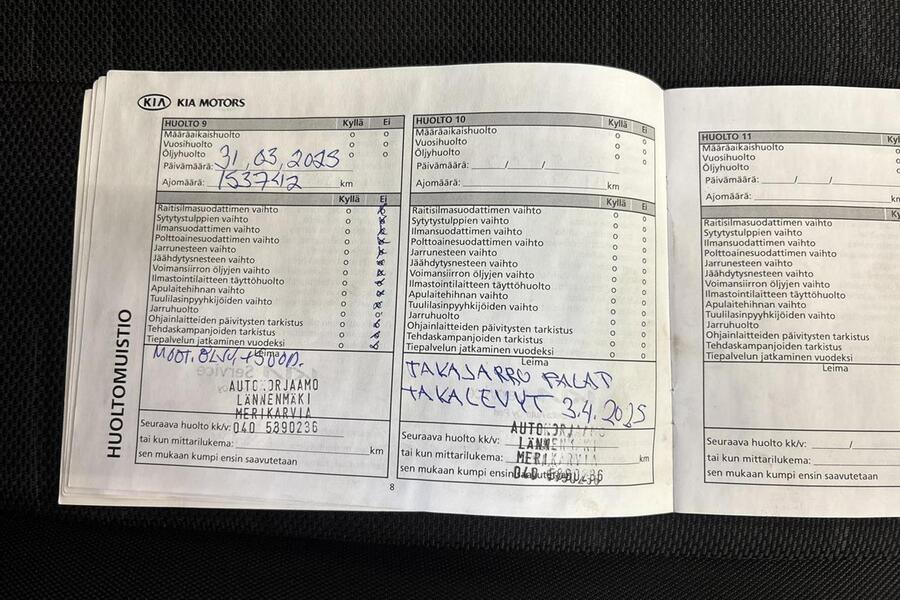 KIA KIA MOTORS
HUOLTO 9 Kyllä Ei
Määräaikaishuolto o o
Vuosihuolto o o
Öljyhuolto o o
Päivämäärä: 31.03.2025
Ajomäärä: 153742 km
Kyllä Ei
Raitisilmasuodattimen vaihto o
Sytytystulppien vaihto o
Ilmansuodattimen vaihto o
Polttoainesuodattimen vaihto o
Jarrunesteen vaihto o
Jäähdytysnesteen vaihto o
Voimansiirron öljyjen vaihto o
Ilmastointilaitteen täyttöhuolto o
Apulaitehihnan vaihto o
Tuulilasinpyyhkijöiden vaihto o
Jarruhuolto o
Ohjainlaitteiden päivitysten tarkistus o
Tehdaskampanjoiden tarkistus o
Tiepalvelun jatkaminen vuodeksi o
Leima
MOOT.ÖLJY
LÄNNENMÄKI
MERIKARVIA
Seuraava huolto kk/v: 040 5890236
tai kun mittarilukema: km
sen mukaan kumpi ensin saavutetaan
8
HUOLTOMUISTIO
HUOLTO 10 Kyllä Ei
Määräaikaishuolto o o
Vuosihuolto o o
Öljyhuolto o o
Päivämäärä: / /
Ajomäärä: km
Kyllä Ei
Raitisilmasuodattimen vaihto o o
Sytytystulppien vaihto o o
Ilmansuodattimen vaihto o o
Polttoainesuodattimen vaihto o o
Jarrunesteen vaihto o o
Jäähdytysnesteen vaihto o o
Voimansiirron öljyjen vaihto o o
Ilmastointilaitteen täyttöhuolto o o
Apulaitehihnan vaihto o o
Tuulilasinpyyhkijöiden vaihto o o
Jarruhuolto o o
Ohjainlaitteiden päivitysten tarkistus o o
Tehdaskampanjoiden tarkistus o o
Tiepalvelun jatkaminen vuodeksi o o
Leima
TAKAJARRU PALAT
TAKALEVYT 3.4.2025
Seuraava huolto kk/v:
tai kun mittarilukema: km
sen mukaan kumpi ensin saavutetaan
HUOLTO 11
Määräaikaishuolto o
Vuosihuolto o
Öljyhuolto o
Päivämäärä: / /
Ajomäärä:
Raitisilmasuodattimen vaihto
Sytytystulppien vaihto o
Ilmansuodattimen vaihto o
Polttoainesuodattimen vaihto o
Jarrunesteen vaihto o
Jäähdytysnesteen vaihto o
Voimansiirron öljyjen vaihto o
Ilmastointilaitteen täyttöhuolto o
Apulaitehihnan vaihto o
Tuulilasinpyyhkijöiden vaihto o
Jarruhuolto o
Ohjainlaitteiden päivitysten tarkistus o
Tehdaskampanjoiden tarkistus o
Tiepalvelun jatkaminen vuodeksi o
Leima
Seuraava huolto kk/v: /
tai kun mittarilukema:
sen mukaan kumpi ensin saavutetaan